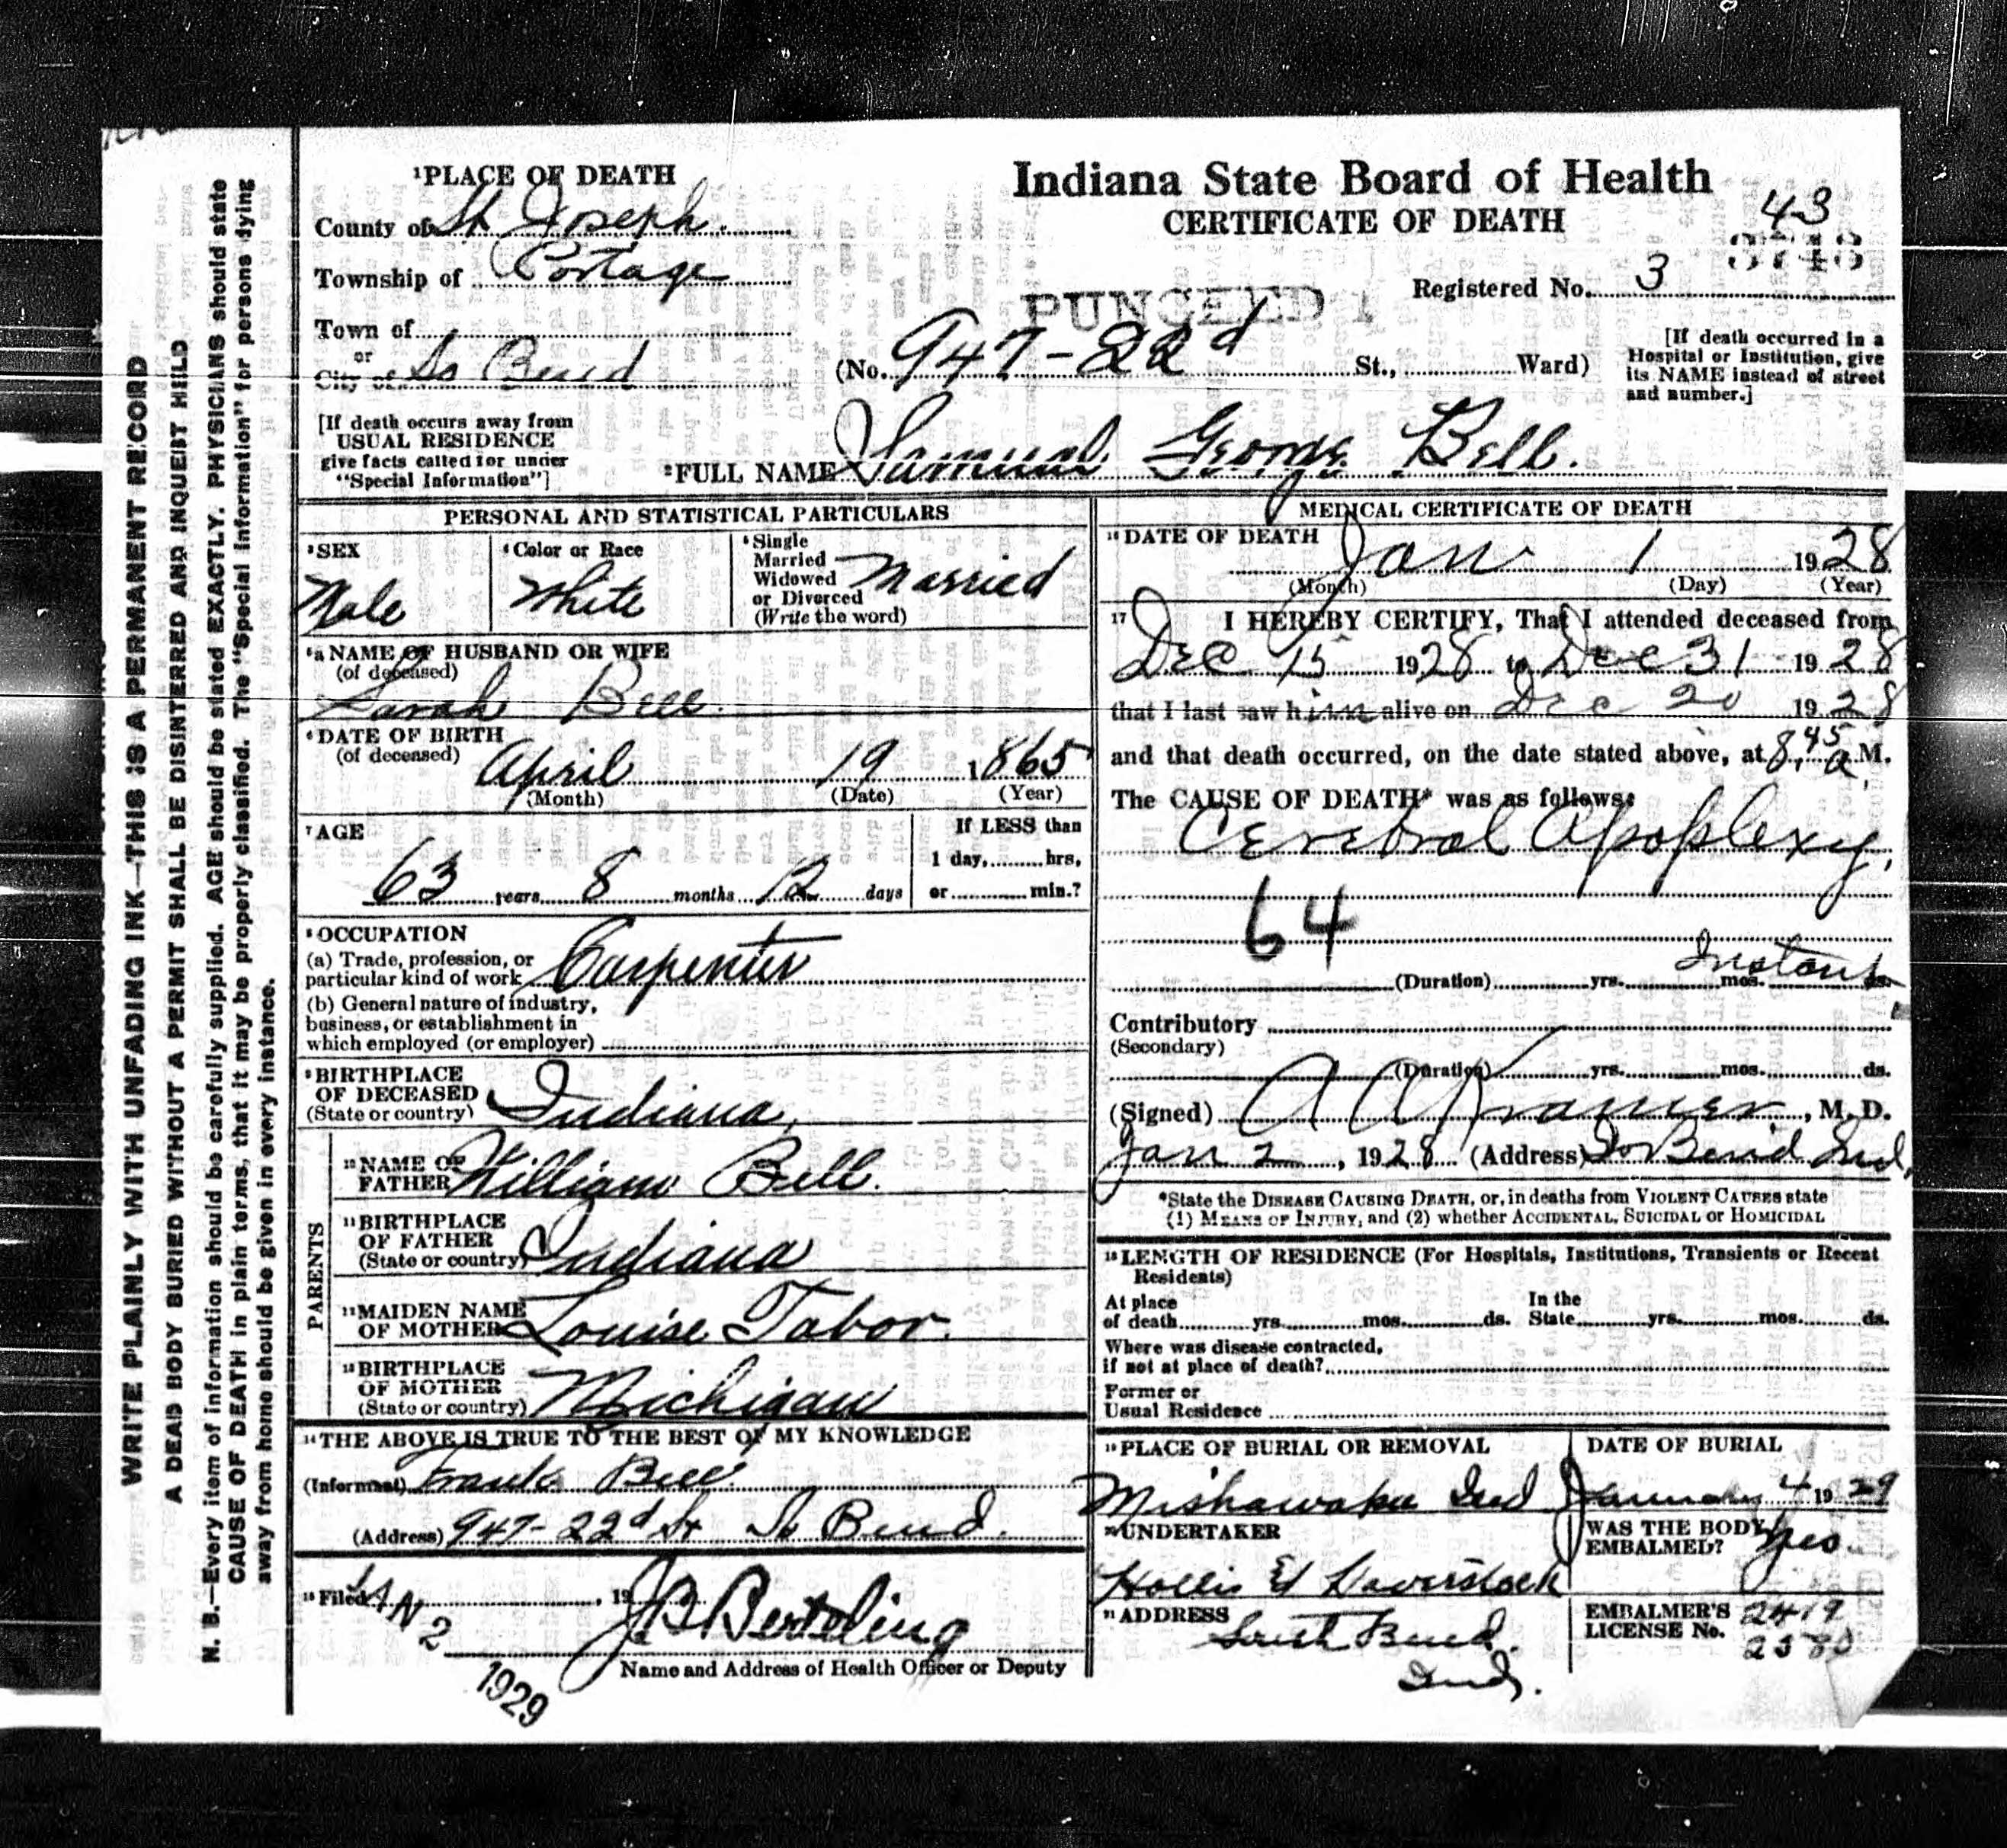 WRITE PLAINLY WITH UNFADING INK—THIS IS A PERMANENT RECORD
A DEAD BODY BURIED WITHOUT A PERMIT SHALL BE DISINTERRED AND INQUEST HELD
N. B.—Every item of information should be carefully supplied. AGE should be stated EXACTLY. PHYSICIANS should state
CAUSE OF DEATH in plain terms, that it may be properly classified. The "Special Information" for persons dying
away from home should be given in every instance.
1 PLACE OF DEATH
County of St Joseph.
Township of Portage
Town of
or
City of So Bend
[If death occurs away from
USUAL RESIDENCE
give facts called for under
"Special Information"]
Indiana State Board of Health
CERTIFICATE OF DEATH
43
3743
Registered No. 3
PUNCHED 1
(No. 947-22d St., Ward)
[If death occurred in a
Hospital or Institution, give
its NAME instead of street
and number.]
2 FULL NAME Samual George Bell.
PERSONAL AND STATISTICAL PARTICULARS
3 SEX
Male
4 Color or Race
White
5 Single
Married
Widowed
or Divorced
(Write the word)
Married
5a NAME OF HUSBAND OR WIFE
(of deceased)
Sarah Bell.
6 DATE OF BIRTH
(of deceased)
April 19 1865
(Month) (Date) (Year)
7 AGE
63 years 8 months 12 days
If LESS than
1 day, hrs,
or min.?
8 OCCUPATION
(a) Trade, profession, or
particular kind of work Carpenter
(b) General nature of industry,
business, or establishment in
which employed (or employer)
9 BIRTHPLACE
OF DECEASED
(State or country) Indiana,
PARENTS
10 NAME OF
FATHER William Bell.
11 BIRTHPLACE
OF FATHER
(State or country) Indiana
12 MAIDEN NAME
OF MOTHER Louise Tabor.
13 BIRTHPLACE
OF MOTHER
(State or country) Michigan
14 THE ABOVE IS TRUE TO THE BEST OF MY KNOWLEDGE
(Informant) Frank Bell.
(Address) 947-22d St So Bend.
15 Filed JAN 2 1929, 19
J.B. Berteling
Name and Address of Health Officer or Deputy
MEDICAL CERTIFICATE OF DEATH
16 DATE OF DEATH
Jan 1 1928
(Month) (Day) (Year)
17 I HEREBY CERTIFY, That I attended deceased from
Dec 15 1928 to Dec 31 1928
that I last saw him alive on Dec 20 1928
and that death occurred, on the date stated above, at 8,45 a M.
The CAUSE OF DEATH* was as follows:
Cerebral Apoplexy,
64
Instant
(Duration) yrs. mos. ds.
Contributory
(Secondary)
(Duration) yrs. mos. ds.
(Signed) , M. D.
Jan 2, 1928 (Address) So Bend Ind,
*State the DISEASE CAUSING DEATH, or, in deaths from VIOLENT CAUSES state
(1) MEANS OF INJURY, and (2) whether ACCIDENTAL, SUICIDAL or HOMICIDAL
18 LENGTH OF RESIDENCE (For Hospitals, Institutions, Transients or Recent
Residents)
At place
of death yrs. mos. ds.
In the
State yrs. mos. ds.
Where was disease contracted,
if not at place of death?
Former or
Usual Residence
19 PLACE OF BURIAL OR REMOVAL
Mishawaka Ind
DATE OF BURIAL
January 4 1929
20 UNDERTAKER
Hollis Ed Haverstock
WAS THE BODY
EMBALMED? Yes.
21 ADDRESS
South Bend.
Ind.
EMBALMER'S
LICENSE No.
2419
2580